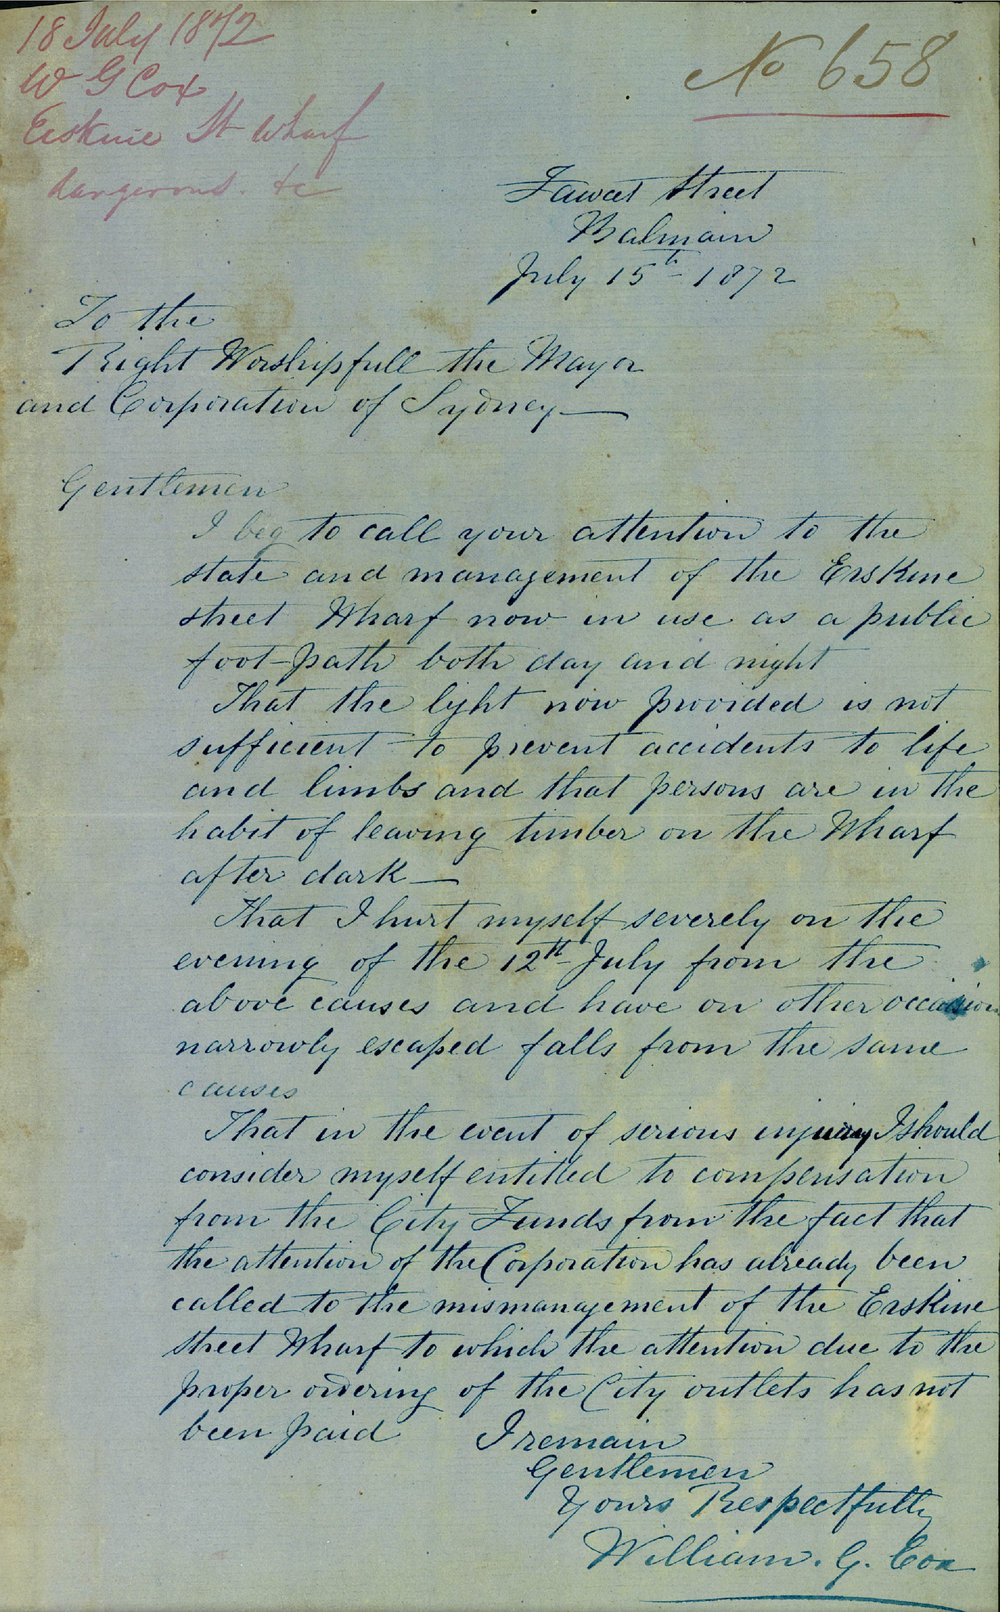 18 July 1872
W G Cox
Erskine St Wharf
dangerous. &c
No 658
Fawcet Street
Balmain
July 15th 1872
To the
Right Worshipfull the Mayor
and Corporation of Sydney
Gentlemen
I beg to call your attention to the
state and management of the Erskine
street Wharf now in use as a public
foot-path both day and night
That the light now provided is not
sufficient to prevent accidents to life
and limbs and that persons are in the
habit of leaving timber on the Wharf
after dark
That I hurt myself severely on the
evening of the 12th July from the
above causes and have on other occasions
narrowly escaped falls from the same
causes
That in the event of serious injury I should
consider myself entitled to compensation
from the City Funds from the fact that
the attention of the Corporation has already been
called to the mismanagement of the Erskine
street Wharf to which the attention due to the
proper ordering of the City outlets has not
been paid I remain
Gentlemen
Yours Respectfully
William. G. Cox